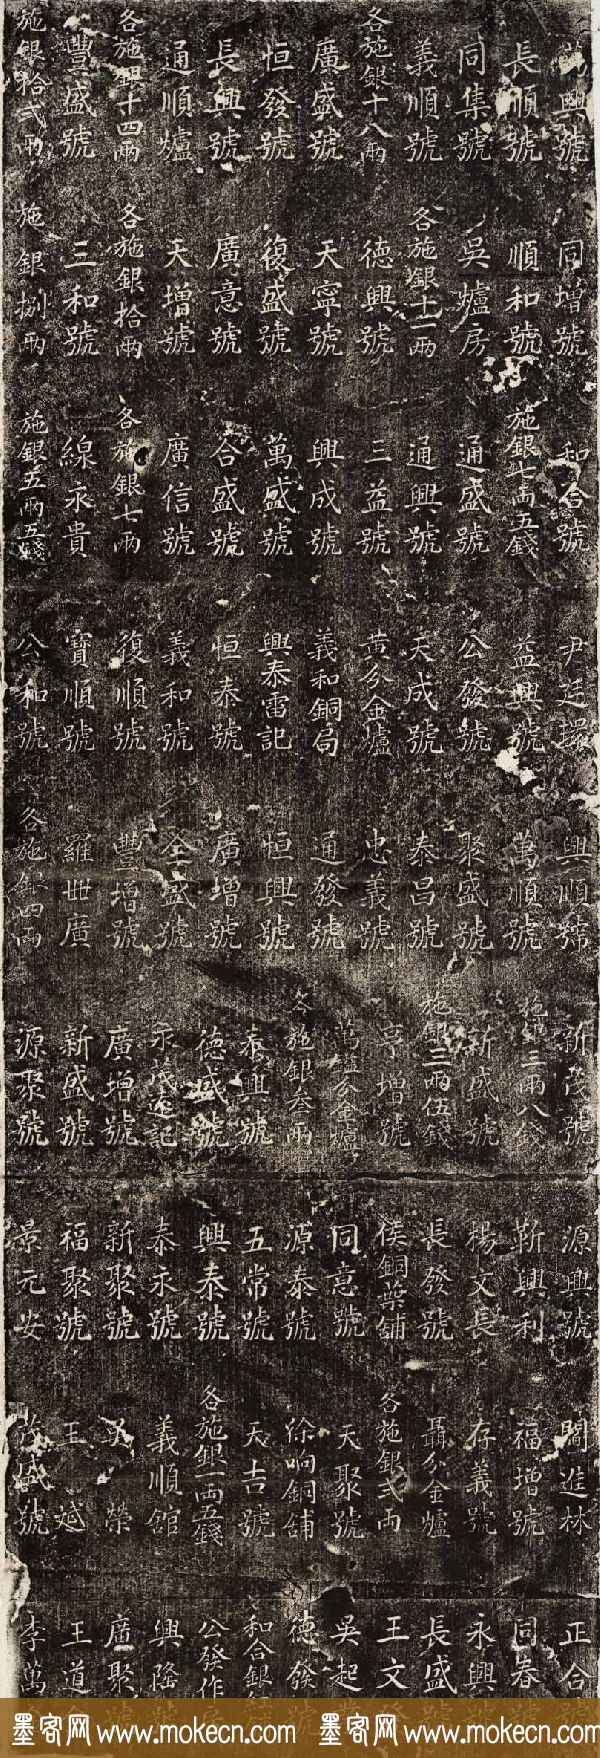 萬興號
長順號
同集號
義順號
各施銀十八兩
廣盛號
恒發號
長興號
通順爐
各施銀十四兩
豐盛號
施銀拾弍兩
同增號
順和號
吳爐房
各施銀十一兩
德興號
天寧號
復盛號
廣意號
天增號
各施銀拾兩
三和號
施銀捌兩
和合號
施銀七兩五錢
通盛號
通興號
三益號
興成號
萬盛號
合盛號
廣信號
各施銀七兩
線永貴
施銀五兩五錢
尹廷
益興號
公發號
天成號
黃分金爐
義和銅局
興泰雷記
恒泰號
義和號
復順號
寶順號
公和號
興順號
萬順號
聚盛號
泰昌號
忠義號
通發號
恒興號
廣增號
全盛號
豐增號
羅世廣
各施銀四兩
新茂號
施銀三兩八錢
新盛號
施銀三兩伍錢
亨增號
萬鎰分金爐
各施銀叁兩
泰興號
德盛號
永茂遠記
廣增號
新盛號
源聚號
源興號
靳興利
楊文長
長發號
侯銅藥舖
同意號
源泰號
五常號
興泰號
泰永號
新聚號
福聚號
景元安
關進林
福增號
存義號
聶分金爐
各施銀弍兩
天聚號
徐响銅舖
天吉號
各施銀一兩五錢
義順舘
吳榮
王斌
茂盛號
正合號
同春
永興
長盛
王文
吳起
德發號
和合銀
公發作房
興隆
廣聚號
王道
李萬
墨客网 www.mokecn.com 墨客网 www.mokecn.com